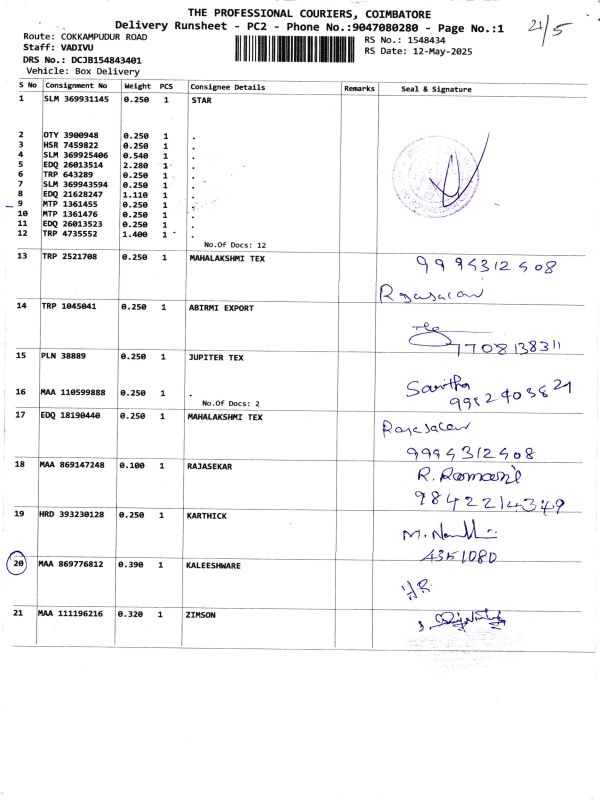 THE PROFESSIONAL COURIERS, COIMBATORE
Delivery Runsheet - PC2 - Phone No.:9047080280 - Page No.:1
21/5
Route: COKKAMPUDUR ROAD
RS No.: 1548434
Staff: VADIVU
RS Date: 12-May-2025
DRS No.: DCJB154843401
Vehicle: Box Delivery
S No Consignment No Weight PCS Consignee Details Remarks Seal & Signature
1 SLM 369931145 0.250 1 STAR
2 OTY 3900948 0.250 1 .
3 HSR 7459822 0.250 1 .
4 SLM 369925406 0.540 1 .
5 EDQ 26013514 2.280 1 .
6 TRP 643289 0.250 1 .
7 SLM 369943594 0.250 1 .
8 EDQ 21628247 1.110 1 .
9 MTP 1361455 0.250 1 .
10 MTP 1361476 0.250 1 .
11 EDQ 26013523 0.250 1 .
12 TRP 4735552 1.400 1 .
No.Of Docs: 12
13 TRP 2521708 0.250 1 MAHALAKSHMI TEX
14 TRP 1045041 0.250 1 ABIRMI EXPORT
1708138311
15 PLN 38889 0.250 1 JUPITER TEX
16 MAA 110599888 0.250 1 .
Savitha
No.Of Docs: 2
17 EDQ 18190440 0.250 1 MAHALAKSHMI TEX
18 MAA 869147248 0.100 1 RAJASEKAR
9842214349
19 HRD 393230128 0.250 1 KARTHICK
4351080
20 MAA 869776812 0.390 1 KALEESHWARE
21 MAA 111196216 0.320 1 ZIMSON